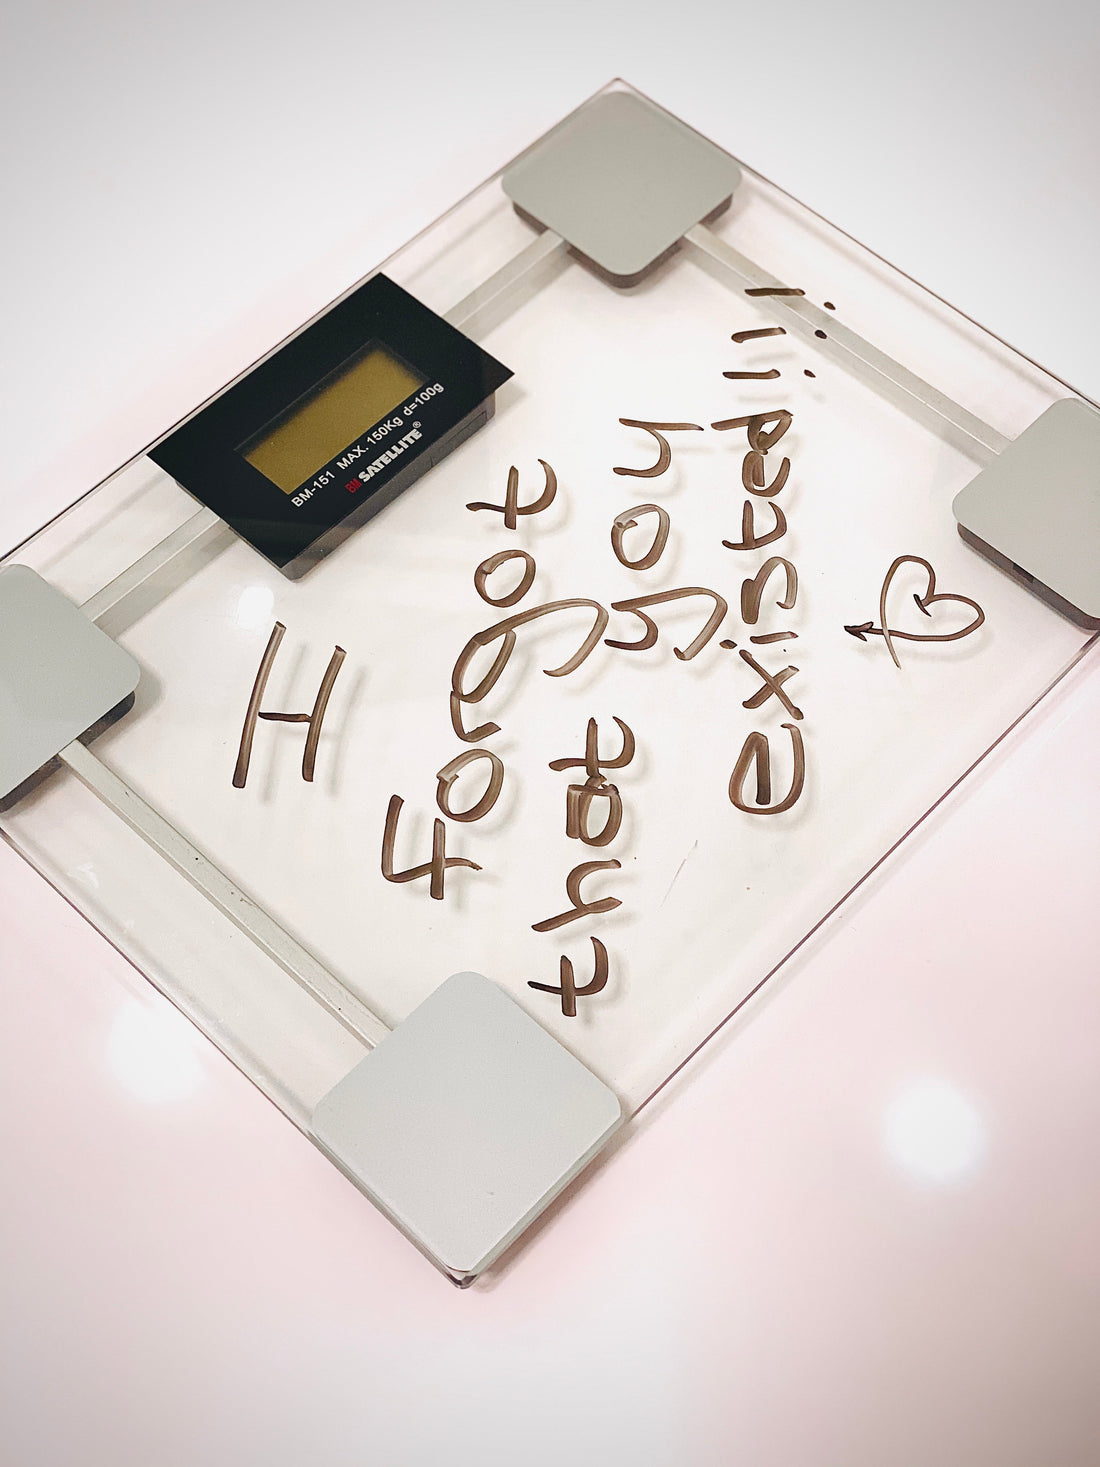 BM-151 MAX. 150Kg d=100g
BM SATELLITE®
I
forgot
that you
existed!!!